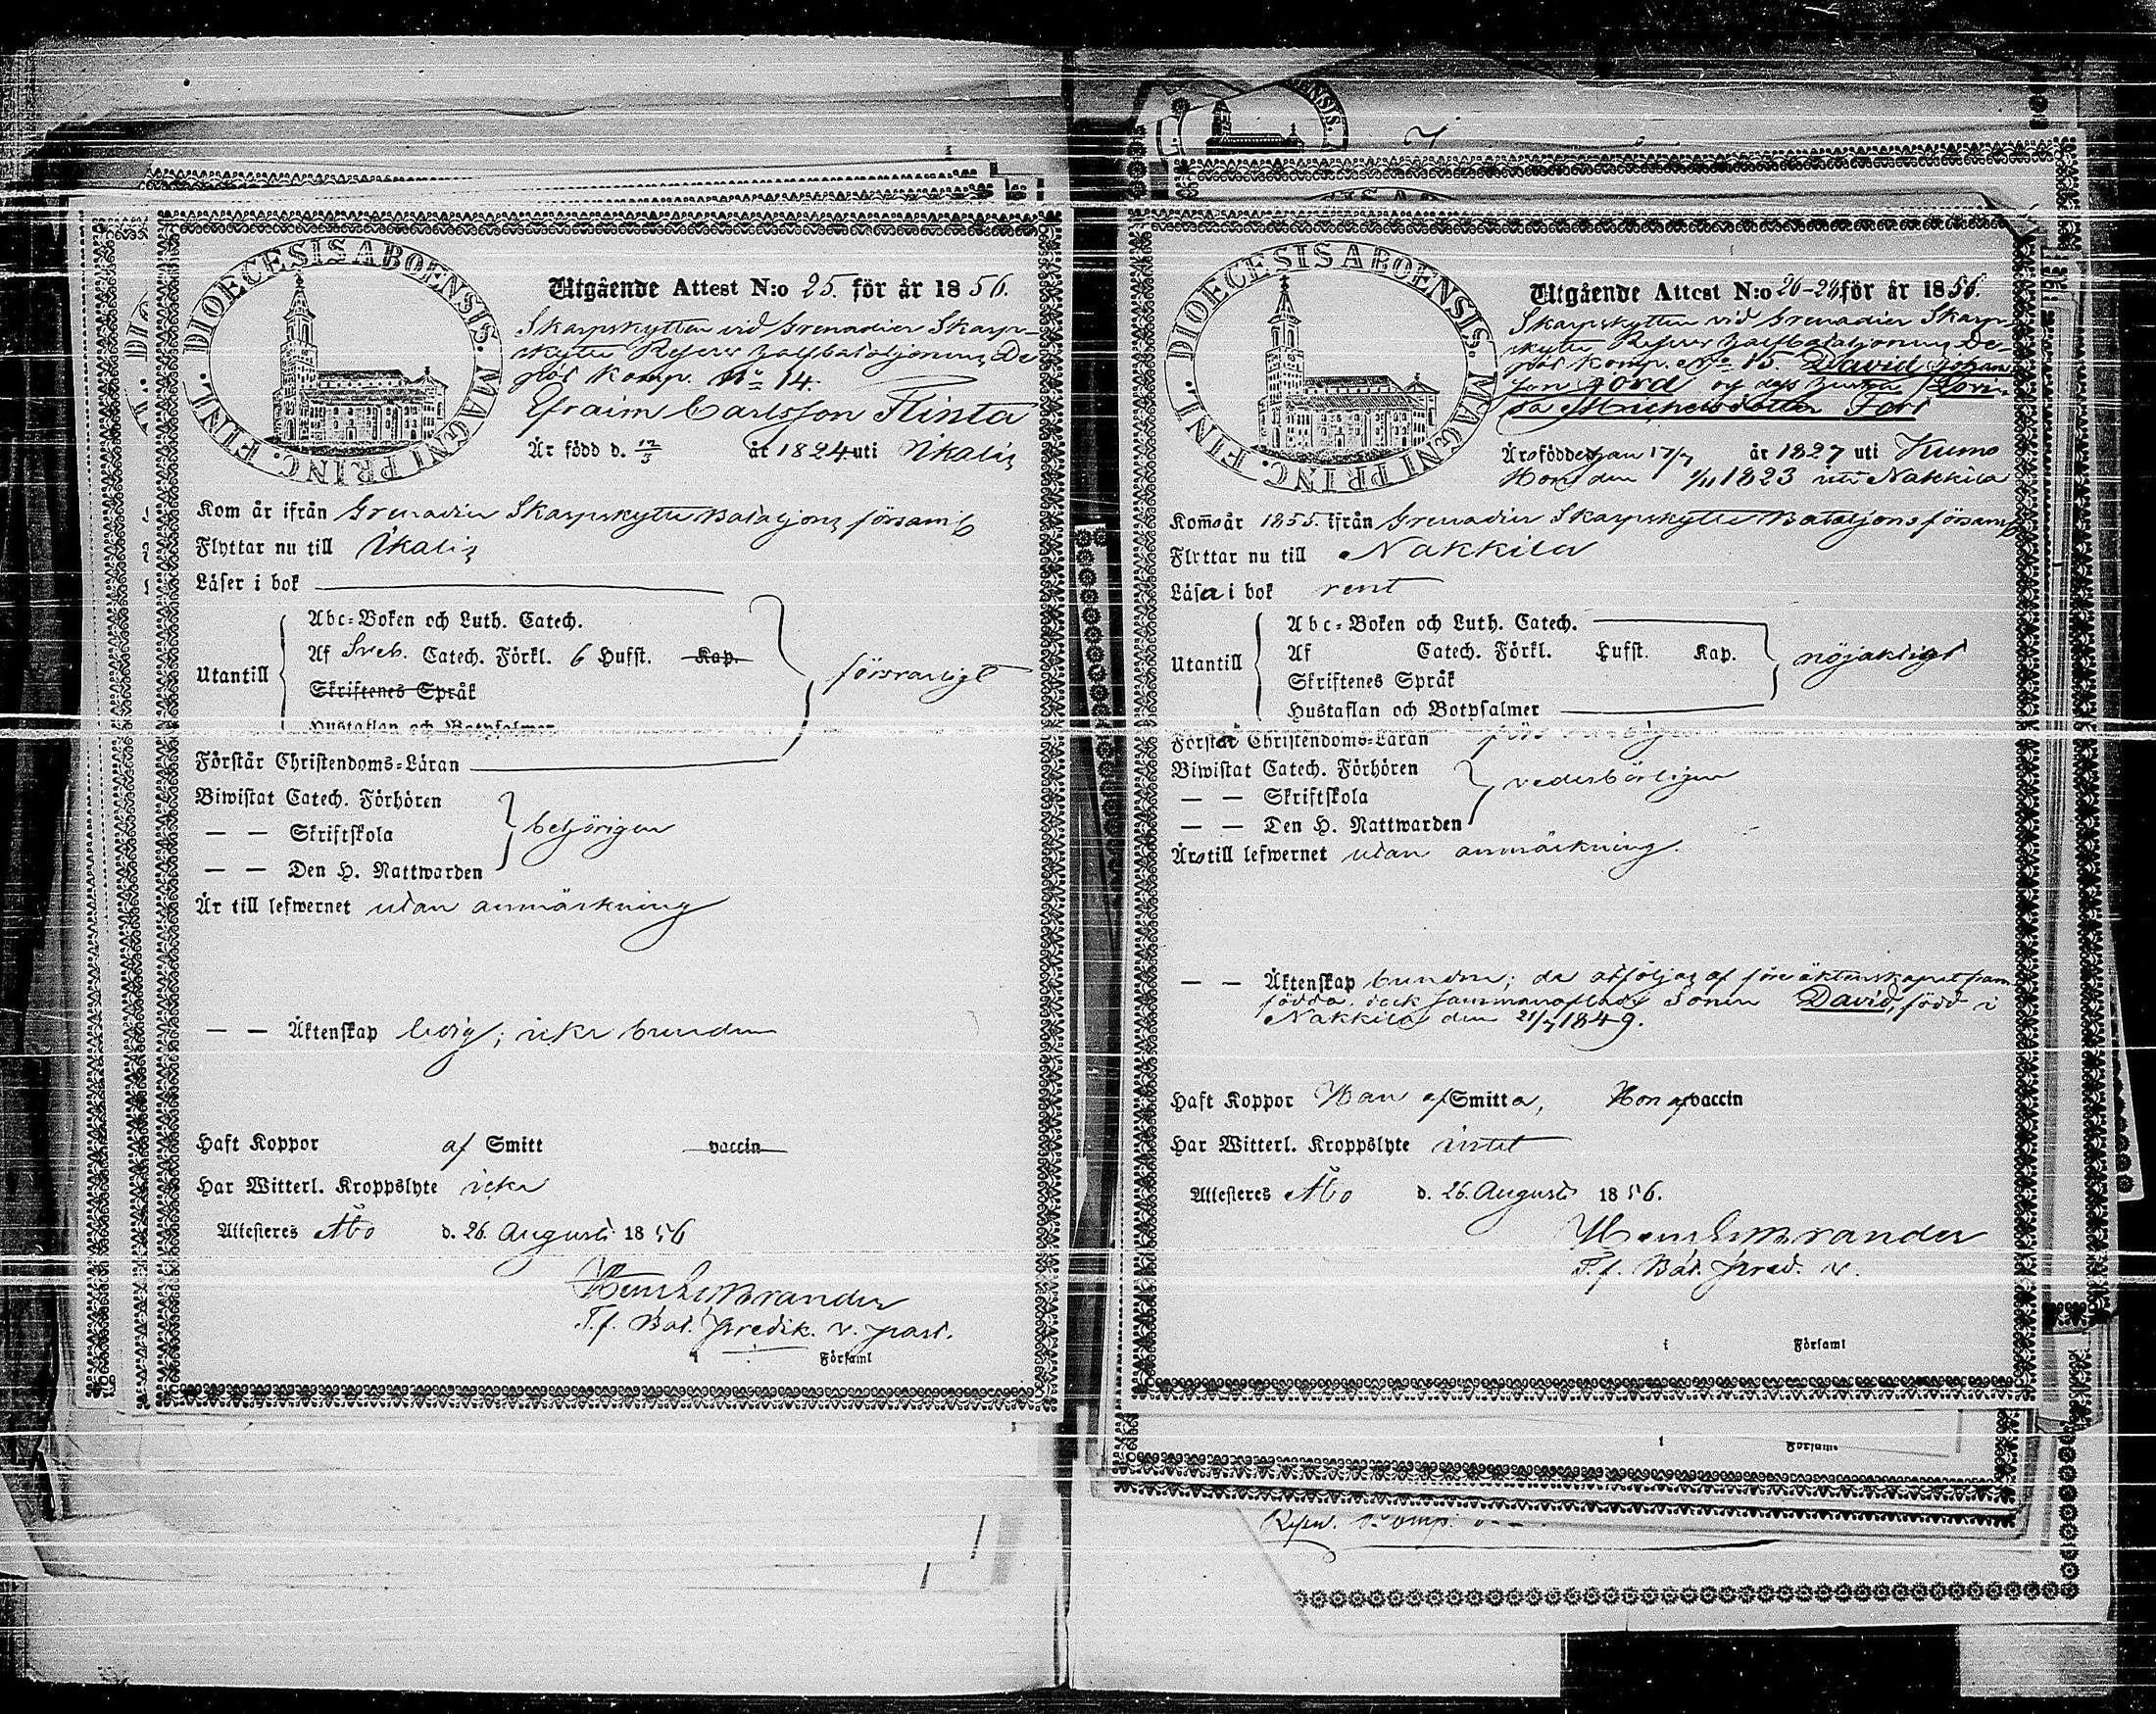 DIOECESIS ABOENSIS. MAGNI PRINC. FINL.
Utgående Attest N:o 25. för år 1856.
Skarpskytten vid Grenadier Skarp-
skytte Reserv Halfbataljonens De-
pôt Komp. No 14.
Efraim Carlsson Flinta
Är född d. 12/3 år 1824 uti Ikalis
Kom år ifrån Grenadier Skarpskytte Bataljons församl
Flyttar nu till Ikalis
Läser i bok
Utantill
Abc-Boken och Luth. Catech.
Af Sveb. Catech. Förkl. 6 Hufst. Kap.
Skriftenes Språk
Hustaflan och Botpsalmer
försvarligt
Förstår Christendoms-Läran
Biwistat Catech. Förhören
— — Skriftskola
— — Den H. Nattwarden
behörigen
Är till lefwernet utan anmärkning
— — Äktenskap ledig; icke bunden
Haft Koppor af Smitt vaccin
Har Witterl. Kroppslyte icke
Attesteres Åbo d. 26. Augusti 1856
Brander
T.f. Bat. Predik. v. past.
i Församl
DIOECESIS ABOENSIS. MAGNI PRINC. FINL.
Utgående Attest N:o för år 1856.
Skarpskytten vid Grenadier Skarp-
skytte Reserv Halfbataljonens De-
pôt Komp. No 15. David Johans
son Jord och dess hustru Lovi-
sa Michelsdotter Fors
Äro födde han 17/7 år 1827 uti Kumo
Hon den 1/11 1823 uti Nakkila
Kommo år 1855. ifrån Grenadier Skarpskytte Bataljons församl
Flyttar nu till Nakkila
Läsa i bok rent
Utantill
Abc-Boken och Luth. Catech.
Af Catech. Förkl. Hufst. Kap.
Skriftenes Språk
Hustaflan och Botpsalmer
nöjaktigt
Förstår Christendoms-Läran
Biwistat Catech. Förhören
— — Skriftskola
— — Den H. Nattwarden
vederbörligen
Äro till lefwernet utan anmärkning.
— — Äktenskap bundne; de åtföljas af före äktenskapet fram
födda, dock sammanaflade Sonen David, född i
Nakkila den 21/7 1849.
Haft Koppor Han af Smitta, Hon af vaccin
Har Witterl. Kroppslyte intet
Attesteres Åbo d. 26. Augusti 1856.
Brander
T.f. Bat. Pred. v.
i Församl
i Församl